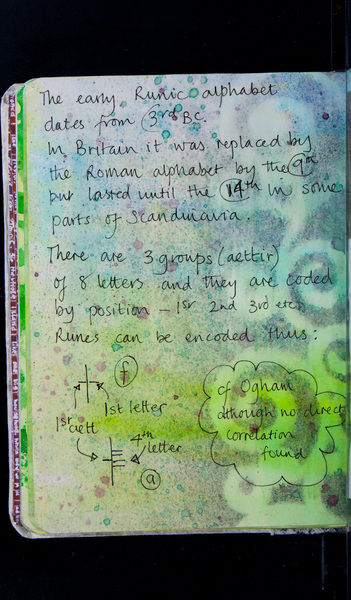 The early Runic alphabet
dates from 3rd BC.
In Britain it was replaced by
the Roman alphabet by the 9th
but lasted until the 14th in some
parts of Scandinavia.
There are 3 groups (aettir)
of 8 letters and they are coded
by position – 1st 2nd 3rd etc.
Runes can be encoded thus:
f
1st letter
1st aett
4th
letter
a
cf Ogham
although no direct
correlation
found